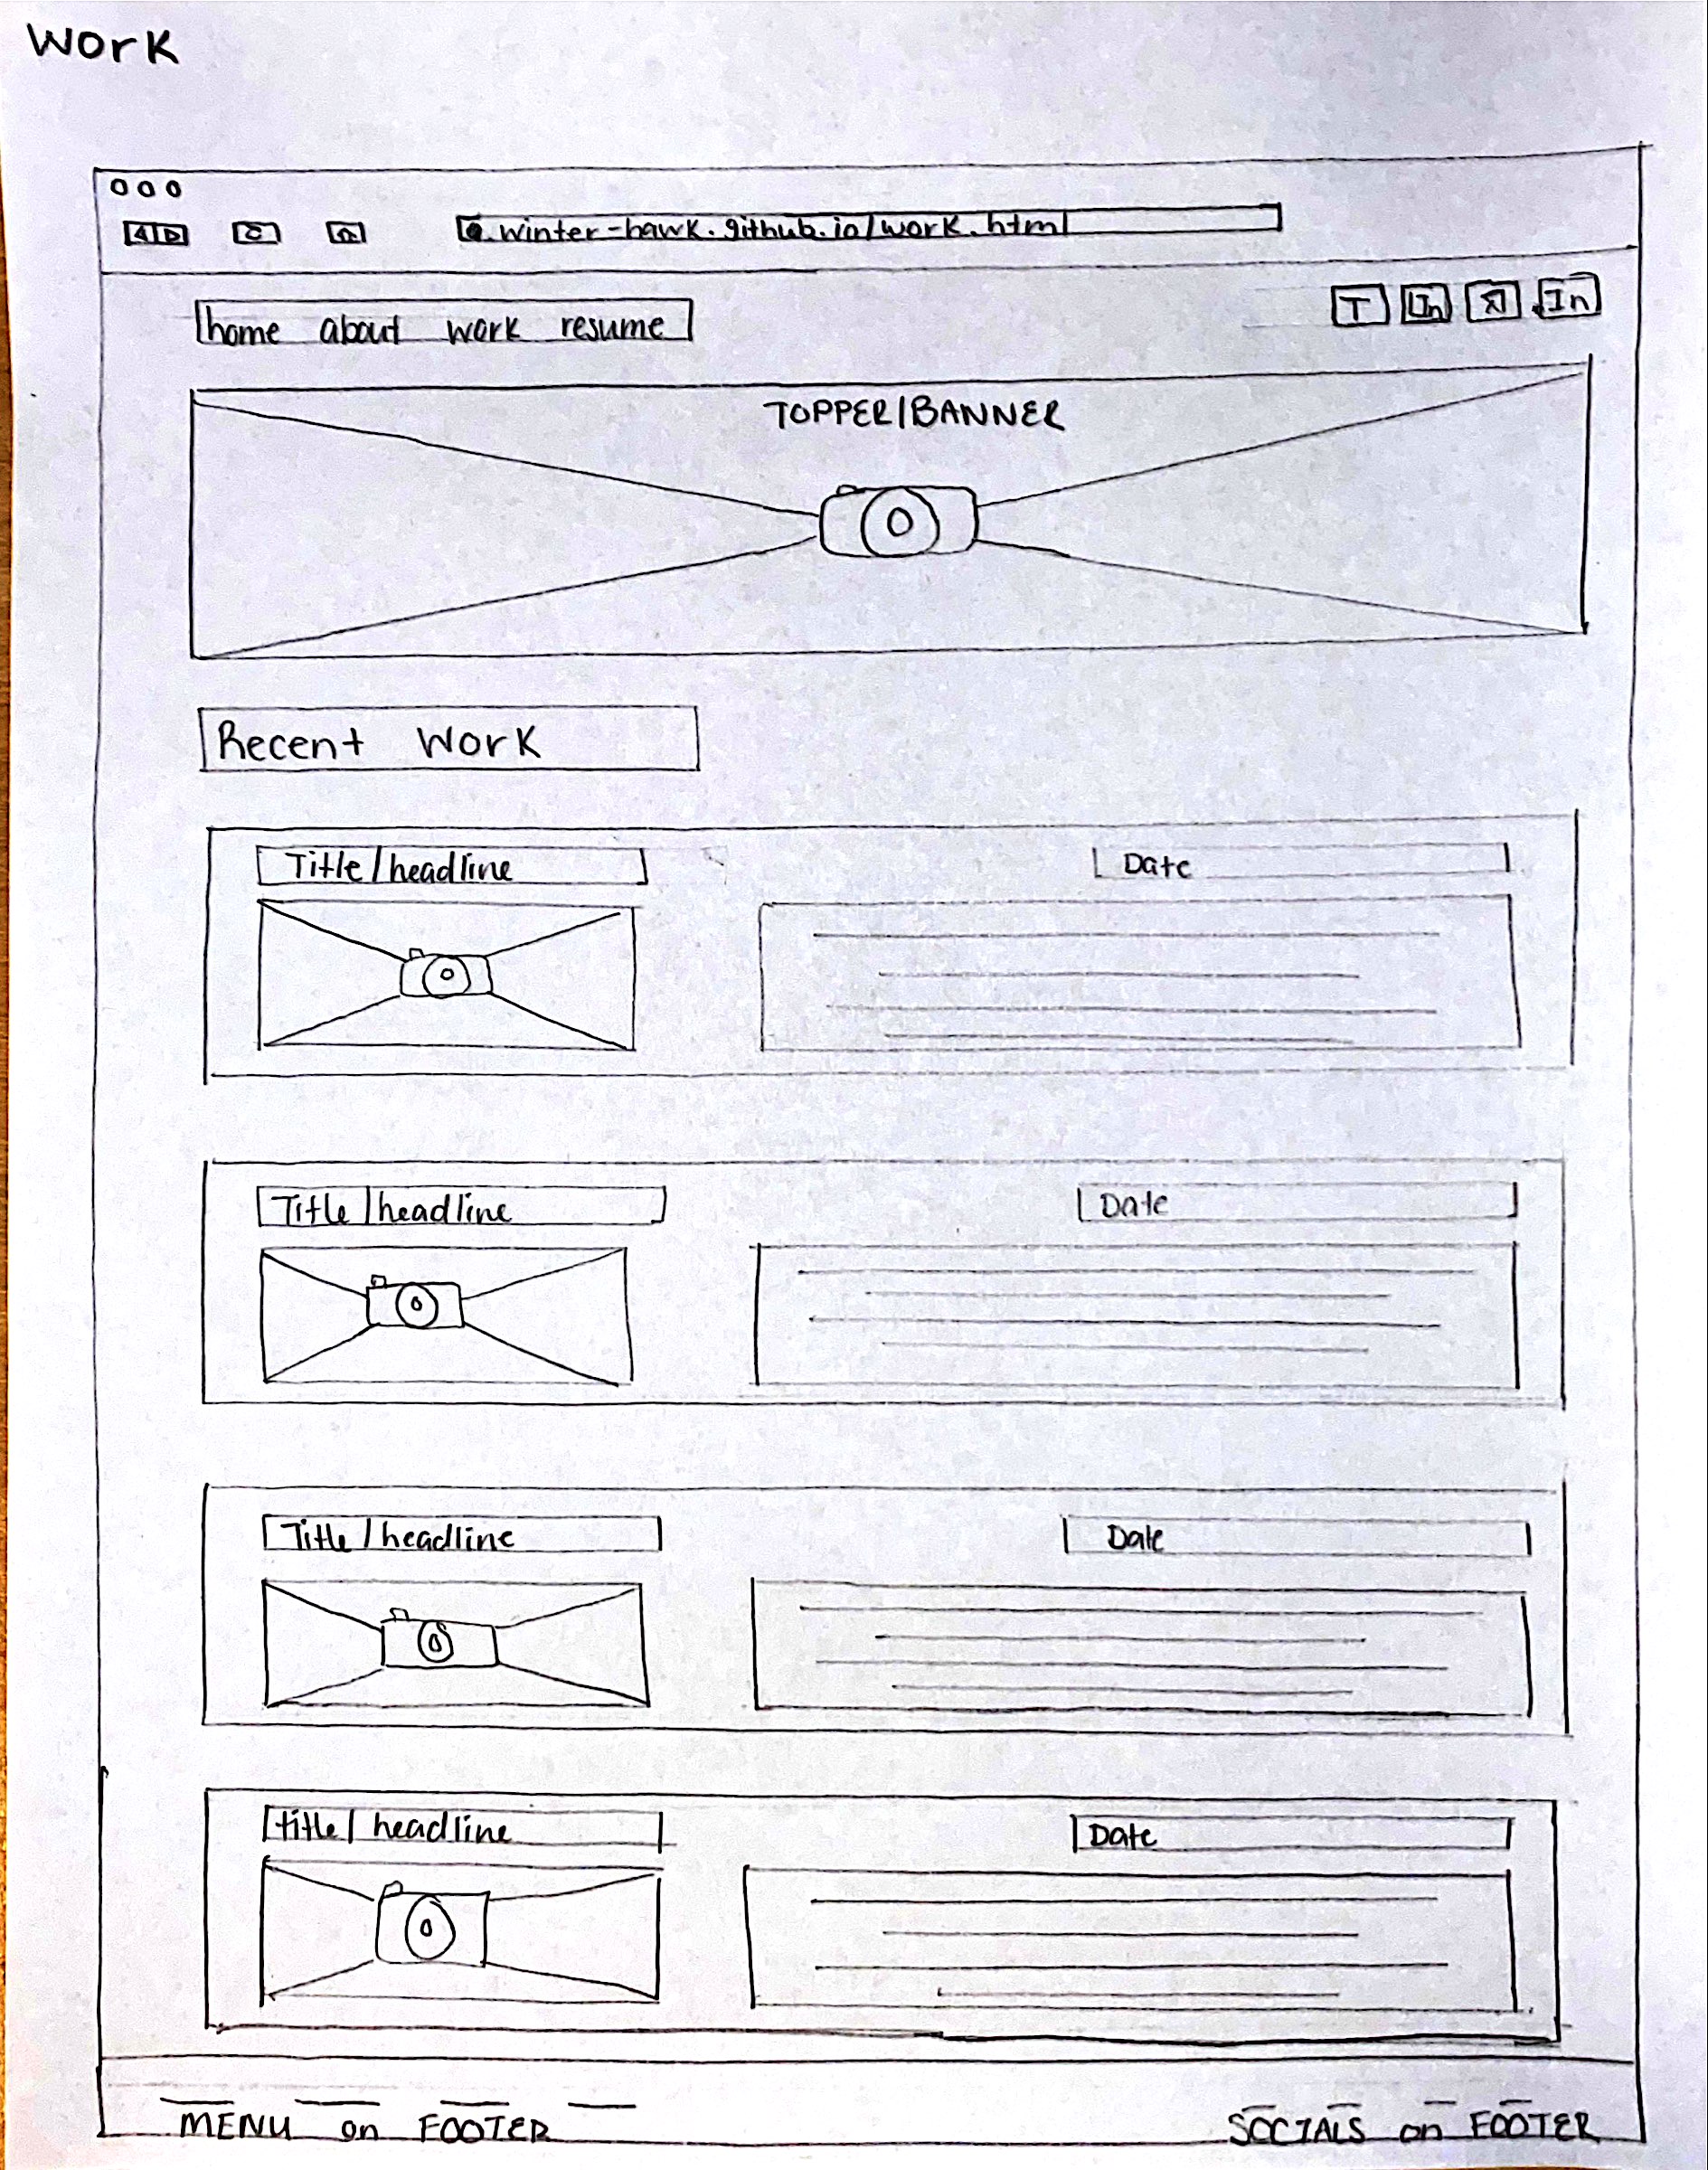 Work
winter-hawk.github.io/work.html
home about work resume
T In In
TOPPER/BANNER
Recent Work
Title/headline Date
Title/headline Date
Title/headline Date
title/headline Date
MENU on FOOTER SOCIALS on FOOTER